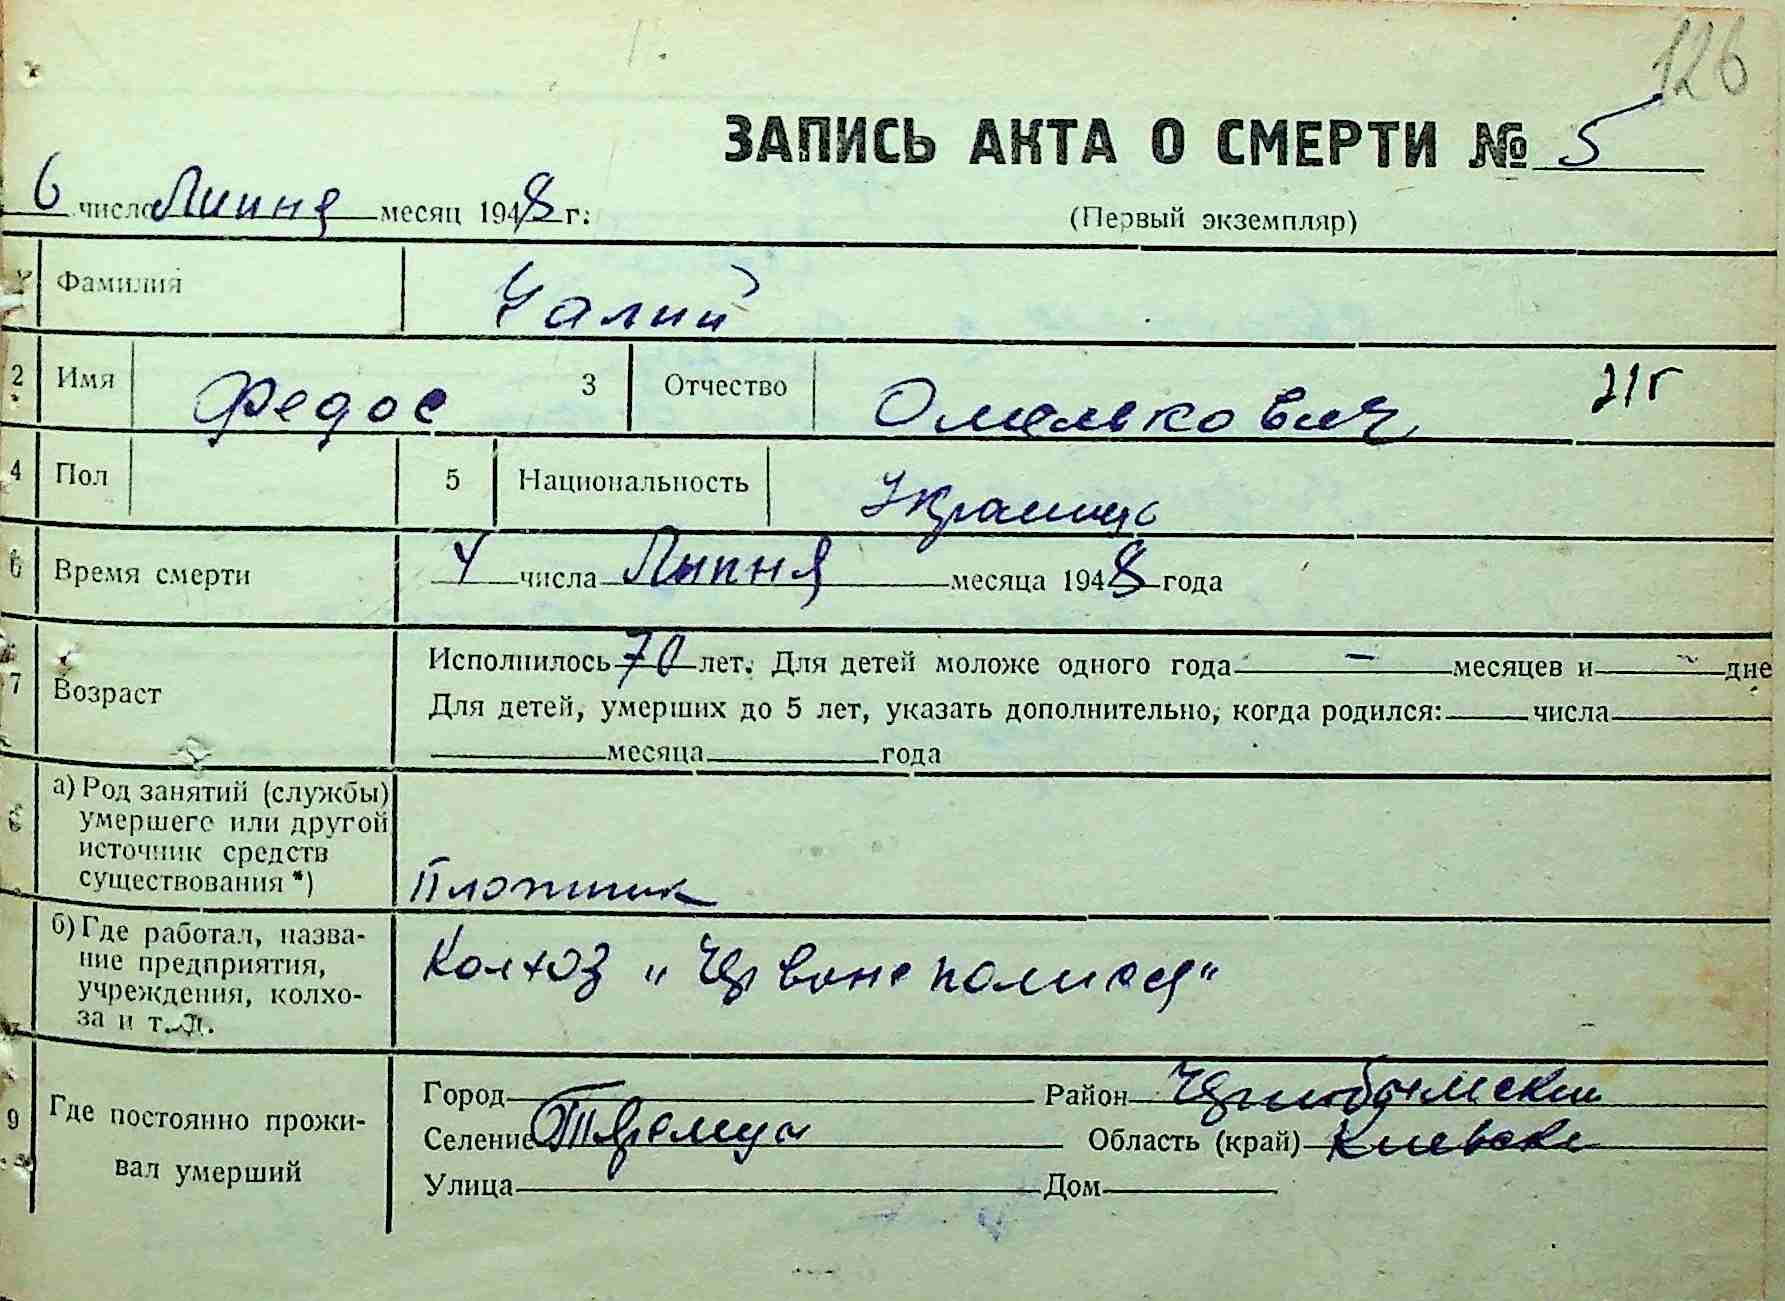 126
ЗАПИСЬ АКТА О СМЕРТИ № 5
6 число Липня месяц 1948 г.
(Первый экземпляр)
Фамилия Чалий
2 Имя Федос 3 Отчество Омелькович
4 Пол 5 Национальность Украинець
6 Время смерти 4 числа Липня месяца 1948 года
7 Возраст
Исполнилось 70 лет. Для детей моложе одного года — месяцев и ~ дне
Для детей, умерших до 5 лет, указать дополнительно, когда родился: числа
месяца года
8 а) Род занятий (службы)
умершего или другой
источник средств
существования *)
Плотник
б) Где работал, назва-
ние предприятия,
учреждения, колхо-
за и т. д.
Колхоз „Червоне полисся"
9 Где постоянно прожи-
вал умерший
Город Район Чернобильский
Селение Теремци Область (край) Киевска
Улица Дом